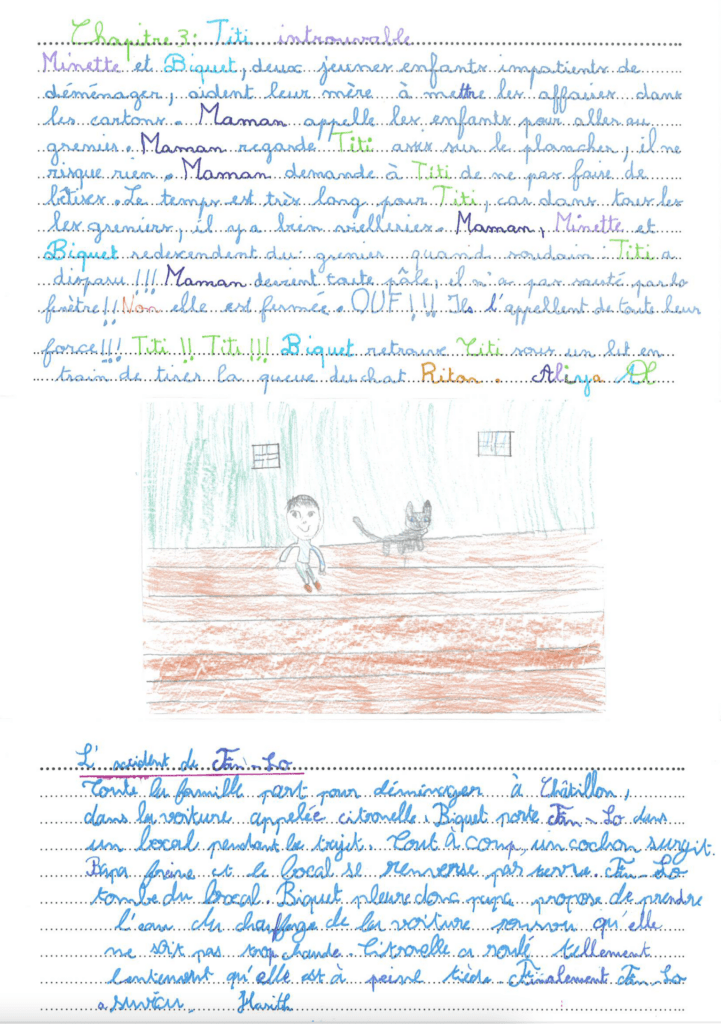 Chapitre 3: Titi introuvable
Minette et Biquet, deux jeunes enfants impatients de
déménager, aident leur mère à mettre les affaires dans
les cartons. Maman appelle les enfants pour aller au
grenier. Maman regarde Titi assis sur le plancher, il ne
risque rien. Maman demande à Titi de ne pas faire de
bêtises. Le temps est très long pour Titi, car dans tous les
les greniers, il y a bien vielleries. Maman, Minette et
Biquet redescendent du grenier quand soudain Titi a
disparu!!! Maman devient toute pâle, il n'a pas sauté par la
fenêtre!! Non elle est fermée. OUF!!! Ils l'appellent de toute leur
force!!! Titi!! Titi!!! Biquet retrouve Titi sous un lit en
train de tirer la queue du chat Riton. Aliya
L'accident de Fan-Lo
Toute la famille part pour déménager à Châtillon,
dans la voiture appelée citronelle. Biquet porte Fan-Lo dans
un bocal pendant le trajet. Tout à coup, un cochon surgit.
Papa freine et le bocal se renverse par terre. Fan-Lo
tombe du bocal. Biquet pleure donc papa propose de prendre
l'eau du chauffage de la voiture qu'elle
ne soit pas trop chaude. Citronelle a roulé tellement
lentement qu'elle est à peine tiède. Finalement Fan-Lo
a survécu. Harith